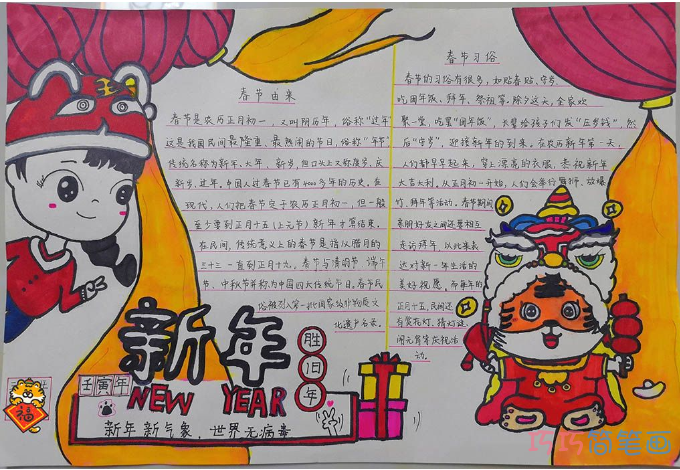 春节由来
春节是农历正月初一，又叫阴历年，俗称"过年"
这是我国民间最隆重、最热闹的节日，俗称"年节"
传统名称为新年、大年、新岁，但口头上又称度岁、庆
新岁、过年。中国人过春节已有4000多年的历史。在
现代，人们把春节定于农历正月初一，但一般
至少要到正月十五（上元节）新年才算结束。
在民间，传统意义上的春节是指从腊月的
二十三一直到正月十五。春节与清明节端午
节、中秋节并称为中国四大传统节日。春节民
俗被列入第一批国家级非物质文
化遗产名录。
春节习俗
春节的习俗有很多，如贴春贴、守岁、
吃团年饭、拜年、祭祖等，除夕这天，全家欢
聚一堂，吃罢"团年饭"，长辈给孩子们发"压岁钱"，然
后"守岁"，迎接新年的到来。在农历新年第一天，
人们都早早起来，穿上漂亮的衣服，恭祝新年
大吉大利。从正月初一开始，人们会举行舞狮、放爆
竹、拜年等活动。春节期间
亲朋好友之间还要相互
走访拜年，以此来表
达对新一年生活的
美好祝愿。而每年的
正月十五，民间还
有赏花灯、猜灯谜、
闹元宵等庆祝活
动。
新年
胜旧年
壬寅年
NEW YEAR
福
新年新气象，世界无病毒
巧巧简笔画